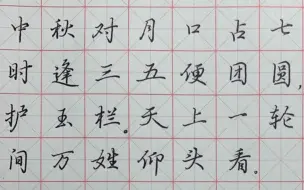 中秋对月口占七
时逢三五便团圆,
护玉栏。天上一轮
间万姓仰头看.